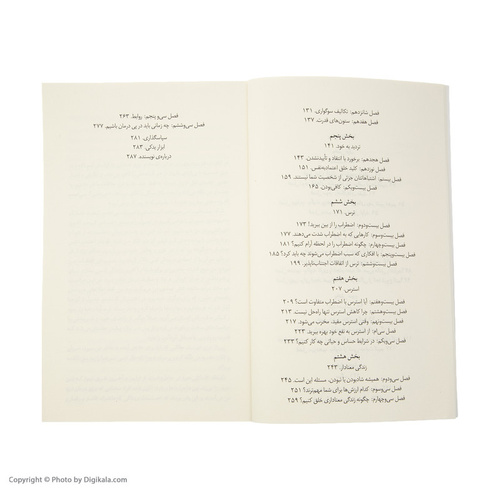 فصل شانزدهم: تکالیف سوگواری. ۱۳۱
فصل هفدهم: ستون‌های قدرت. ۱۳۷
بخش پنجم
تردید به خود. ۱۴۱
فصل هجدهم: برخورد با انتقاد و تأییدنشدن. ۱۴۳
فصل نوزدهم: کلید خلق اعتمادبه‌نفس. ۱۵۱
فصل بیستم: اشتباهاتتان جزئی از شخصیت شما نیستند. ۱۵۹
فصل بیست‌ویکم: کافی‌بودن. ۱۶۵
بخش ششم
ترس. ۱۷۱
فصل بیست‌ودوم: اضطراب را از بین ببرید؟ ۱۷۳
فصل بیست‌وسوم: کارهایی که به اضطراب شدت می‌دهند. ۱۷۷
فصل بیست‌وچهارم: چگونه اضطراب را در لحظه آرام کنیم؟ ۱۸۱
فصل بیست‌وپنجم: با افکاری که سبب اضطراب می‌شوند چه باید کرد؟ ۱۸۵
فصل بیست‌وششم: ترس از اتفاقات اجتناب‌ناپذیر. ۱۹۹
بخش هفتم
استرس. ۲۰۷
فصل بیست‌وهفتم: آیا استرس با اضطراب متفاوت است؟ ۲۰۹
فصل بیست‌وهشتم: چرا کاهش استرس تنها راه‌حل نیست. ۲۱۳
فصل بیست‌ونهم: وقتی استرس مفید، مخرب می‌شود. ۲۱۷
فصل سی‌ام: از استرس به نفع خود بهره ببرید. ۲۲۳
فصل سی‌ویکم: در شرایط حساس و حیاتی چه کار کنیم؟ ۲۳۳
بخش هشتم
زندگی معنادار. ۲۴۳
فصل سی‌ودوم: همیشه شادبودن یا نبودن، مسئله این است. ۲۴۵
فصل سی‌وسوم: کدام ارزش‌ها برای شما مهم‌ترند؟ ۲۵۱
فصل سی‌وچهارم: چگونه زندگی معناداری خلق کنیم؟ ۲۵۹
فصل سی‌وپنجم: روابط. ۲۶۳
فصل سی‌وششم: چه زمانی باید در پی درمان باشیم. ۲۷۷
سپاسگذاری. ۲۸۱
ابزار یدکی. ۲۸۳
درباره‌ی نویسنده. ۲۸۷
Copyright © Photo by Digikala.com